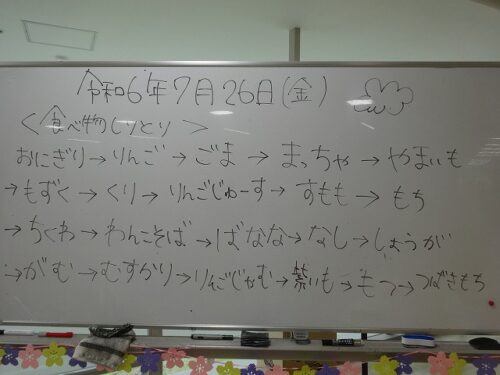 令和6年7月26日(金)
<食べ物しりとり>
おにぎり→りんご→ごま→まっちゃ→やまいも
→もずく→くり→りんごじゅーす→すもも→もち
→ちくわ→わんこそば→ばなな→なし→しょうが
→がむ→むすかり→りんごじゃむ→紫いも→もつ→つばきもち